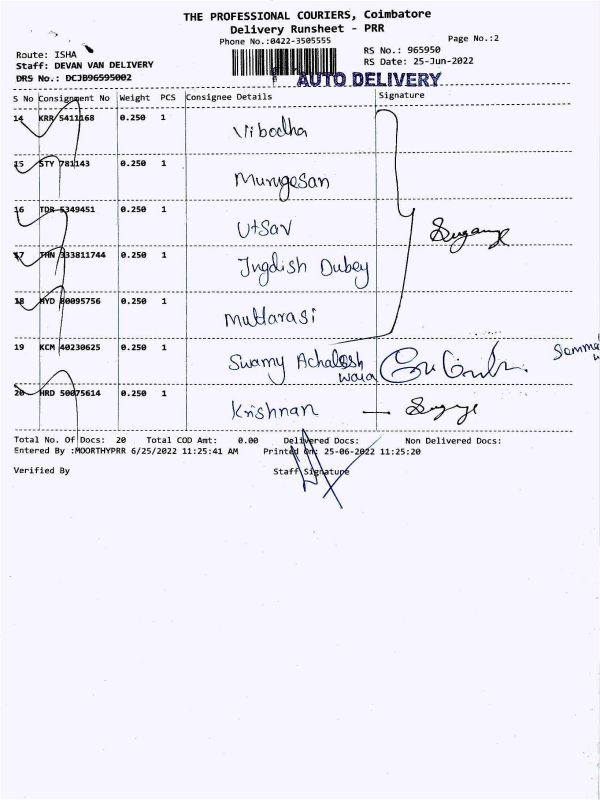 THE PROFESSIONAL COURIERS, Coimbatore
Delivery Runsheet - PRR
Phone No.:0422-3505555 Page No.:2
Route: ISHA RS No.: 965950
Staff: DEVAN VAN DELIVERY RS Date: 25-Jun-2022
DRS No.: DCJB96595002 AUTO DELIVERY
S No Consignment No Weight PCS Consignee Details Signature
14 KRR 5411168 0.250 1
Vibodha
15 STY 781143 0.250 1
Murugesan
16 TDR 5349451 0.250 1
Utsav
17 THN 333811744 0.250 1
Jngdish Dubey
18 HYD 80095756 0.250 1
Muttarasi
19 KCM 40230625 0.250 1
Swamy
20 HRD 50075614 0.250 1
Krishnan
Total No. Of Docs: 20 Total COD Amt: 0.00 Delivered Docs: Non Delivered Docs:
Entered By :MOORTHYPRR 6/25/2022 11:25:41 AM Printed On: 25-06-2022 11:25:20
Verified By Staff Signature